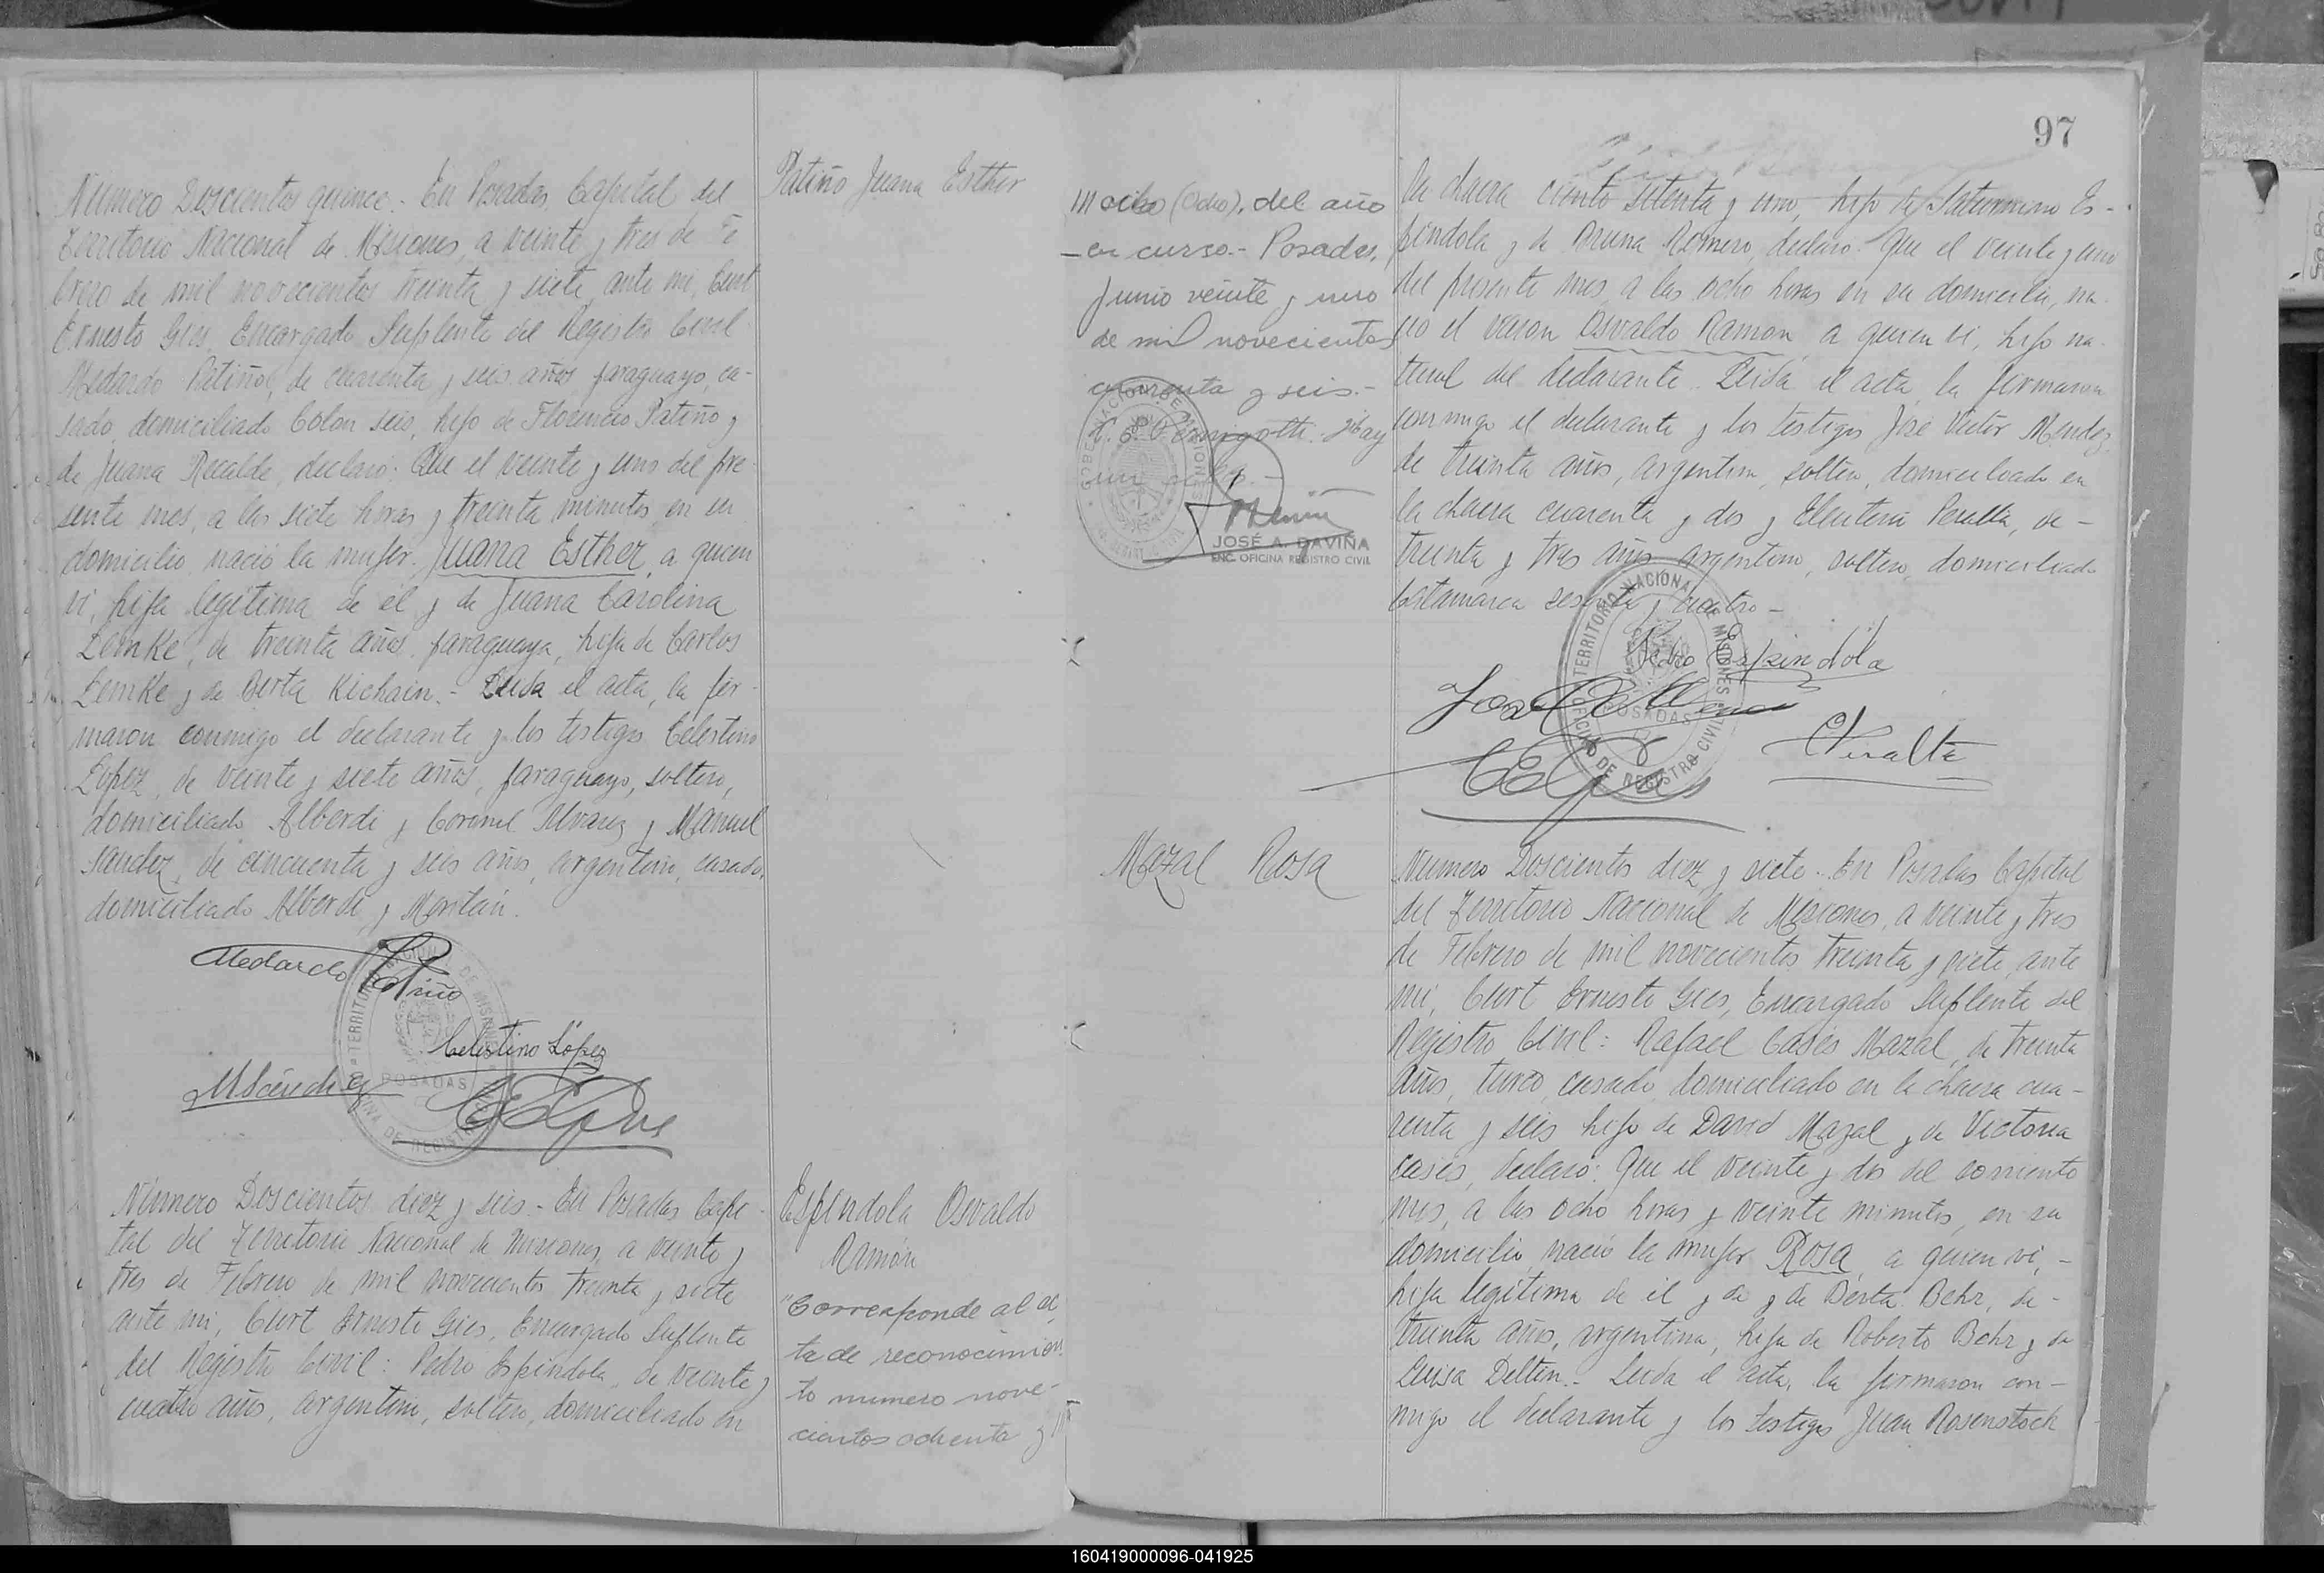 Patiño Juana Esther
Número Doscientos quince.- En Posadas, Capital del
Territorio Nacional de Misiones, a veinte y tres de Fe
brero de mil novecientos treinta y siete, ante mi, Curt
Ernesto Gies, Encargado Suplente del Registro Civil
Medardo Patiño, de cuarenta y seis años paraguayo, ca-
sado, domiciliado Colon seis, hijo de Florencio Patiño y
de Juana Recalde, declaró: Que el veinte y uno del pre-
sente mes, a las siete horas y treinta minutos, en su
domicilio nació la mujer Juana Esther, a quien
vi, hija legítima de él y de Juana Carolina
Lemke, de treinta años, paraguaya, hija de Carlos
Lemke y de Berta Kichain.- Leida el acta, la fir-
maron conmigo el declarante y los testigos Celestino
López, de veinte y siete años, paraguayo, soltero,
domiciliado Alberdi y Coronel Alvarez y Manuel
Sanchez, de cincuenta y seis años, argentino, casado,
domiciliado Alberdi y
Medardo Patiño
Celestino López
MSánchez
TERRITORIO NACIONAL DE MISIONES
POSADAS
OFICINA DE REGISTRO CIVIL
Espíndola Osvaldo
Ramón
Número Doscientos diez y seis.- En Posadas Capi-
tal del Territorio Nacional de Misiones, a veinte y
tres de Febrero de mil novecientos treinta y siete
ante mi, Curt Ernesto Gies, Encargado Suplente
del Registro Civil: Pedro Espíndola, de veinte y
cuatro años, argentino, soltero, domiciliado en
"Corresponde al ac
ta de reconocimien
to numero nove-
cientos ochenta y
97
ocho (Ocho), del año
-en curso.- Posadas,
Junio veinte y uno
de mil novecientos
cuarenta y seis.-
Hay
un sello.-
JOSÉ A. DAVIÑA
ENC. OFICINA REGISTRO CIVIL
la chacra ciento setenta y uno, hijo de Saturnino Es-
píndola y de Bruna Romero, declaró: Que el veinte y uno
del presente mes, a las ocho horas en su domicilio, na-
ció el varon Osvaldo Ramon a quien vi, hijo na-
tural del declarante. Leida el acta, la firmaron
conmigo el declarante y los testigos José Victor Mendez
de treinta años, argentino, soltero, domiciliado en
la chacra cuarenta y dos y Eleuterio Peralta, de-
treinta y tres años argentino, soltero, domiciliado
Catamarca sesenta y cuatro-
Pedro Espindola
Peralta
TERRITORIO NACIONAL DE MISIONES
POSADAS
OFICINA DE REGISTRO CIVIL
Mazal Rosa
Número Doscientos diez y siete.- En Posadas Capital
del Territorio Nacional de Misiones, a veinte y tres
de Febrero de mil novecientos treinta y siete, ante
mi, Curt Ernesto Gies, Encargado Suplente del
Registro Civil: Rafael Casés Mazal, de treinta
años, turco, casado, domiciliado en la chacra cua-
renta y seis hijo de David Mazal y de Victoria
Casés, declaró: Que el veinte y dos del corriente
mes, a las ocho horas y veinte minutos, en su
domicilio, nació la mujer Rosa a quien vi,-
hija legítima de él y de y de Berta Behr, de-
treinta años, argentina, hija de Roberto Behr y de
Luisa Delten.- Leida el acta, la firmaron con-
migo el declarante y los testigos Juan Rosenstock
160419000096-041925